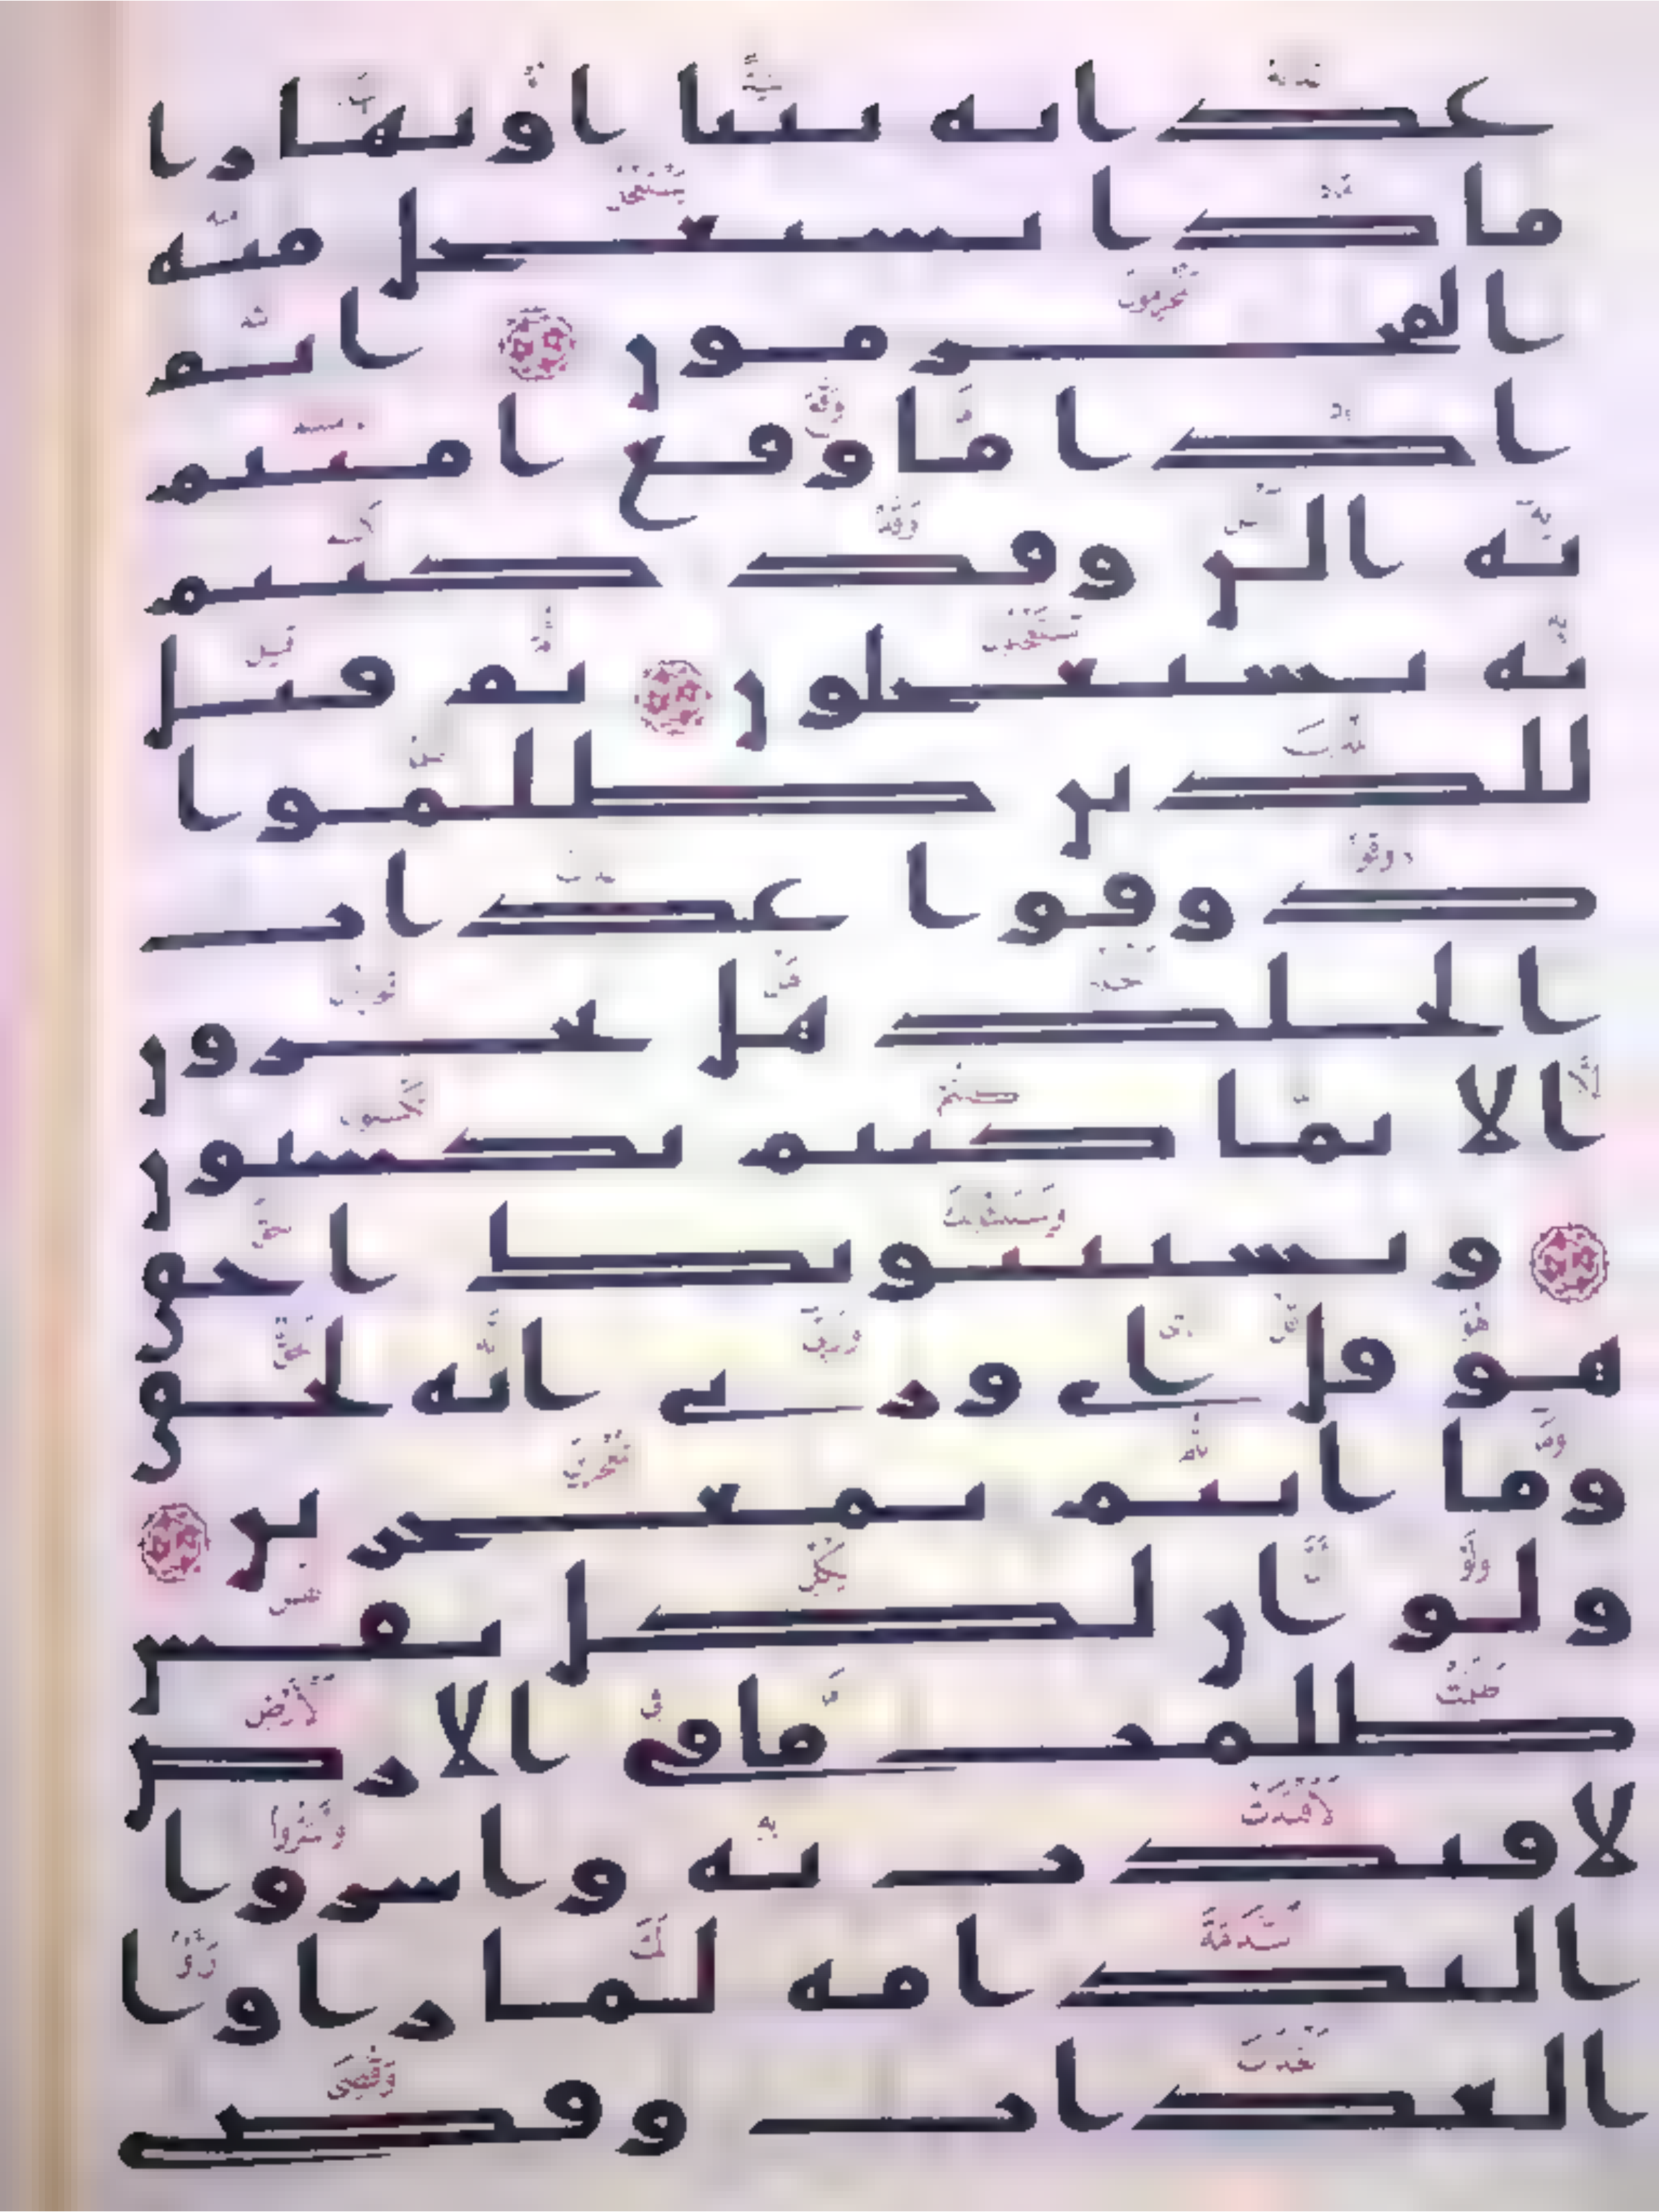 عذابه بيتا او نهارا
ماذا يستعجل منه
المجرمون اثم
اذا ما وقع امنتم
به الن وقد كنتم
به تستعجلون ثم قيل
للذين ظلموا
ذوقوا عذاب
الخلد هل تجزون
الا بما كنتم تكسبون
ويستنبونك احق
هو قل اي وربي انه لحق
وما انتم بمعجزين
ولو ان لكل نفس
ظلمت ما في الارض
لافتدت به واسروا
الندامه لما راوا
العذاب وقضي